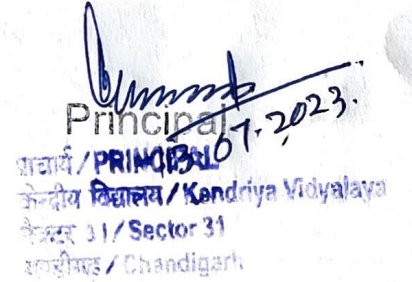 Principal
13.07.2023.
प्राचार्य / PRINCIPAL
केन्द्रीय विद्यालय / Kendriya Vidyalaya
सैक्टर 31 / Sector 31
चण्डीगढ़ / Chandigarh